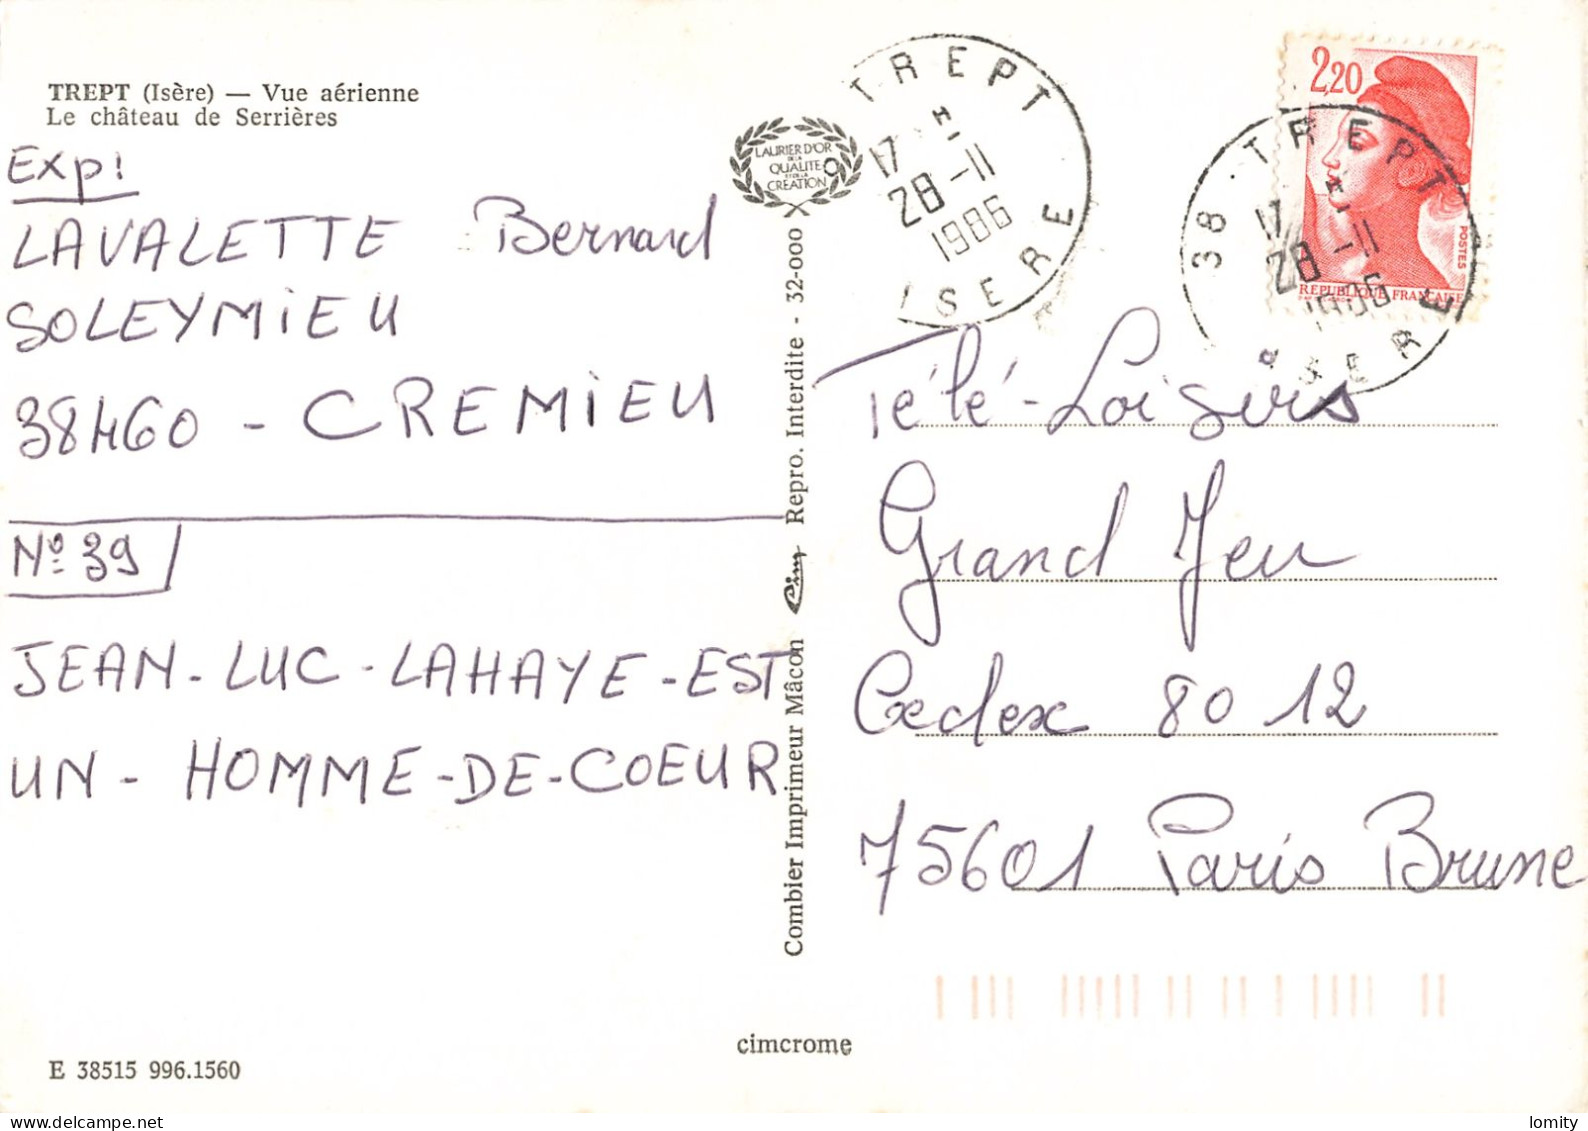 TREPT (Isère) — Vue aérienne
Le château de Serrières
Exp:
LAVALETTE Bernard
SOLEYMIEU
38460 - CREMIEU
N° 39
JEAN-LUC-LAHAYE-EST
UN-HOMME-DE-COEUR
E 38515 996.1560
cimcrome
LAURIER D'OR
DE LA
QUALITE
ET DE LA
CREATION
Combier Imprimeur Mâcon Cim Repro. Interdite - 32-000
TREPT
17 H
28-11
1986
ISERE
38 TREPT
17 H
28-11
1986
ISERE
2,20
POSTES
REPUBLIQUE FRANCAISE
Télé-Loisirs
Grand Jeu
Cedex 8012
75601 Paris Brune
lomity